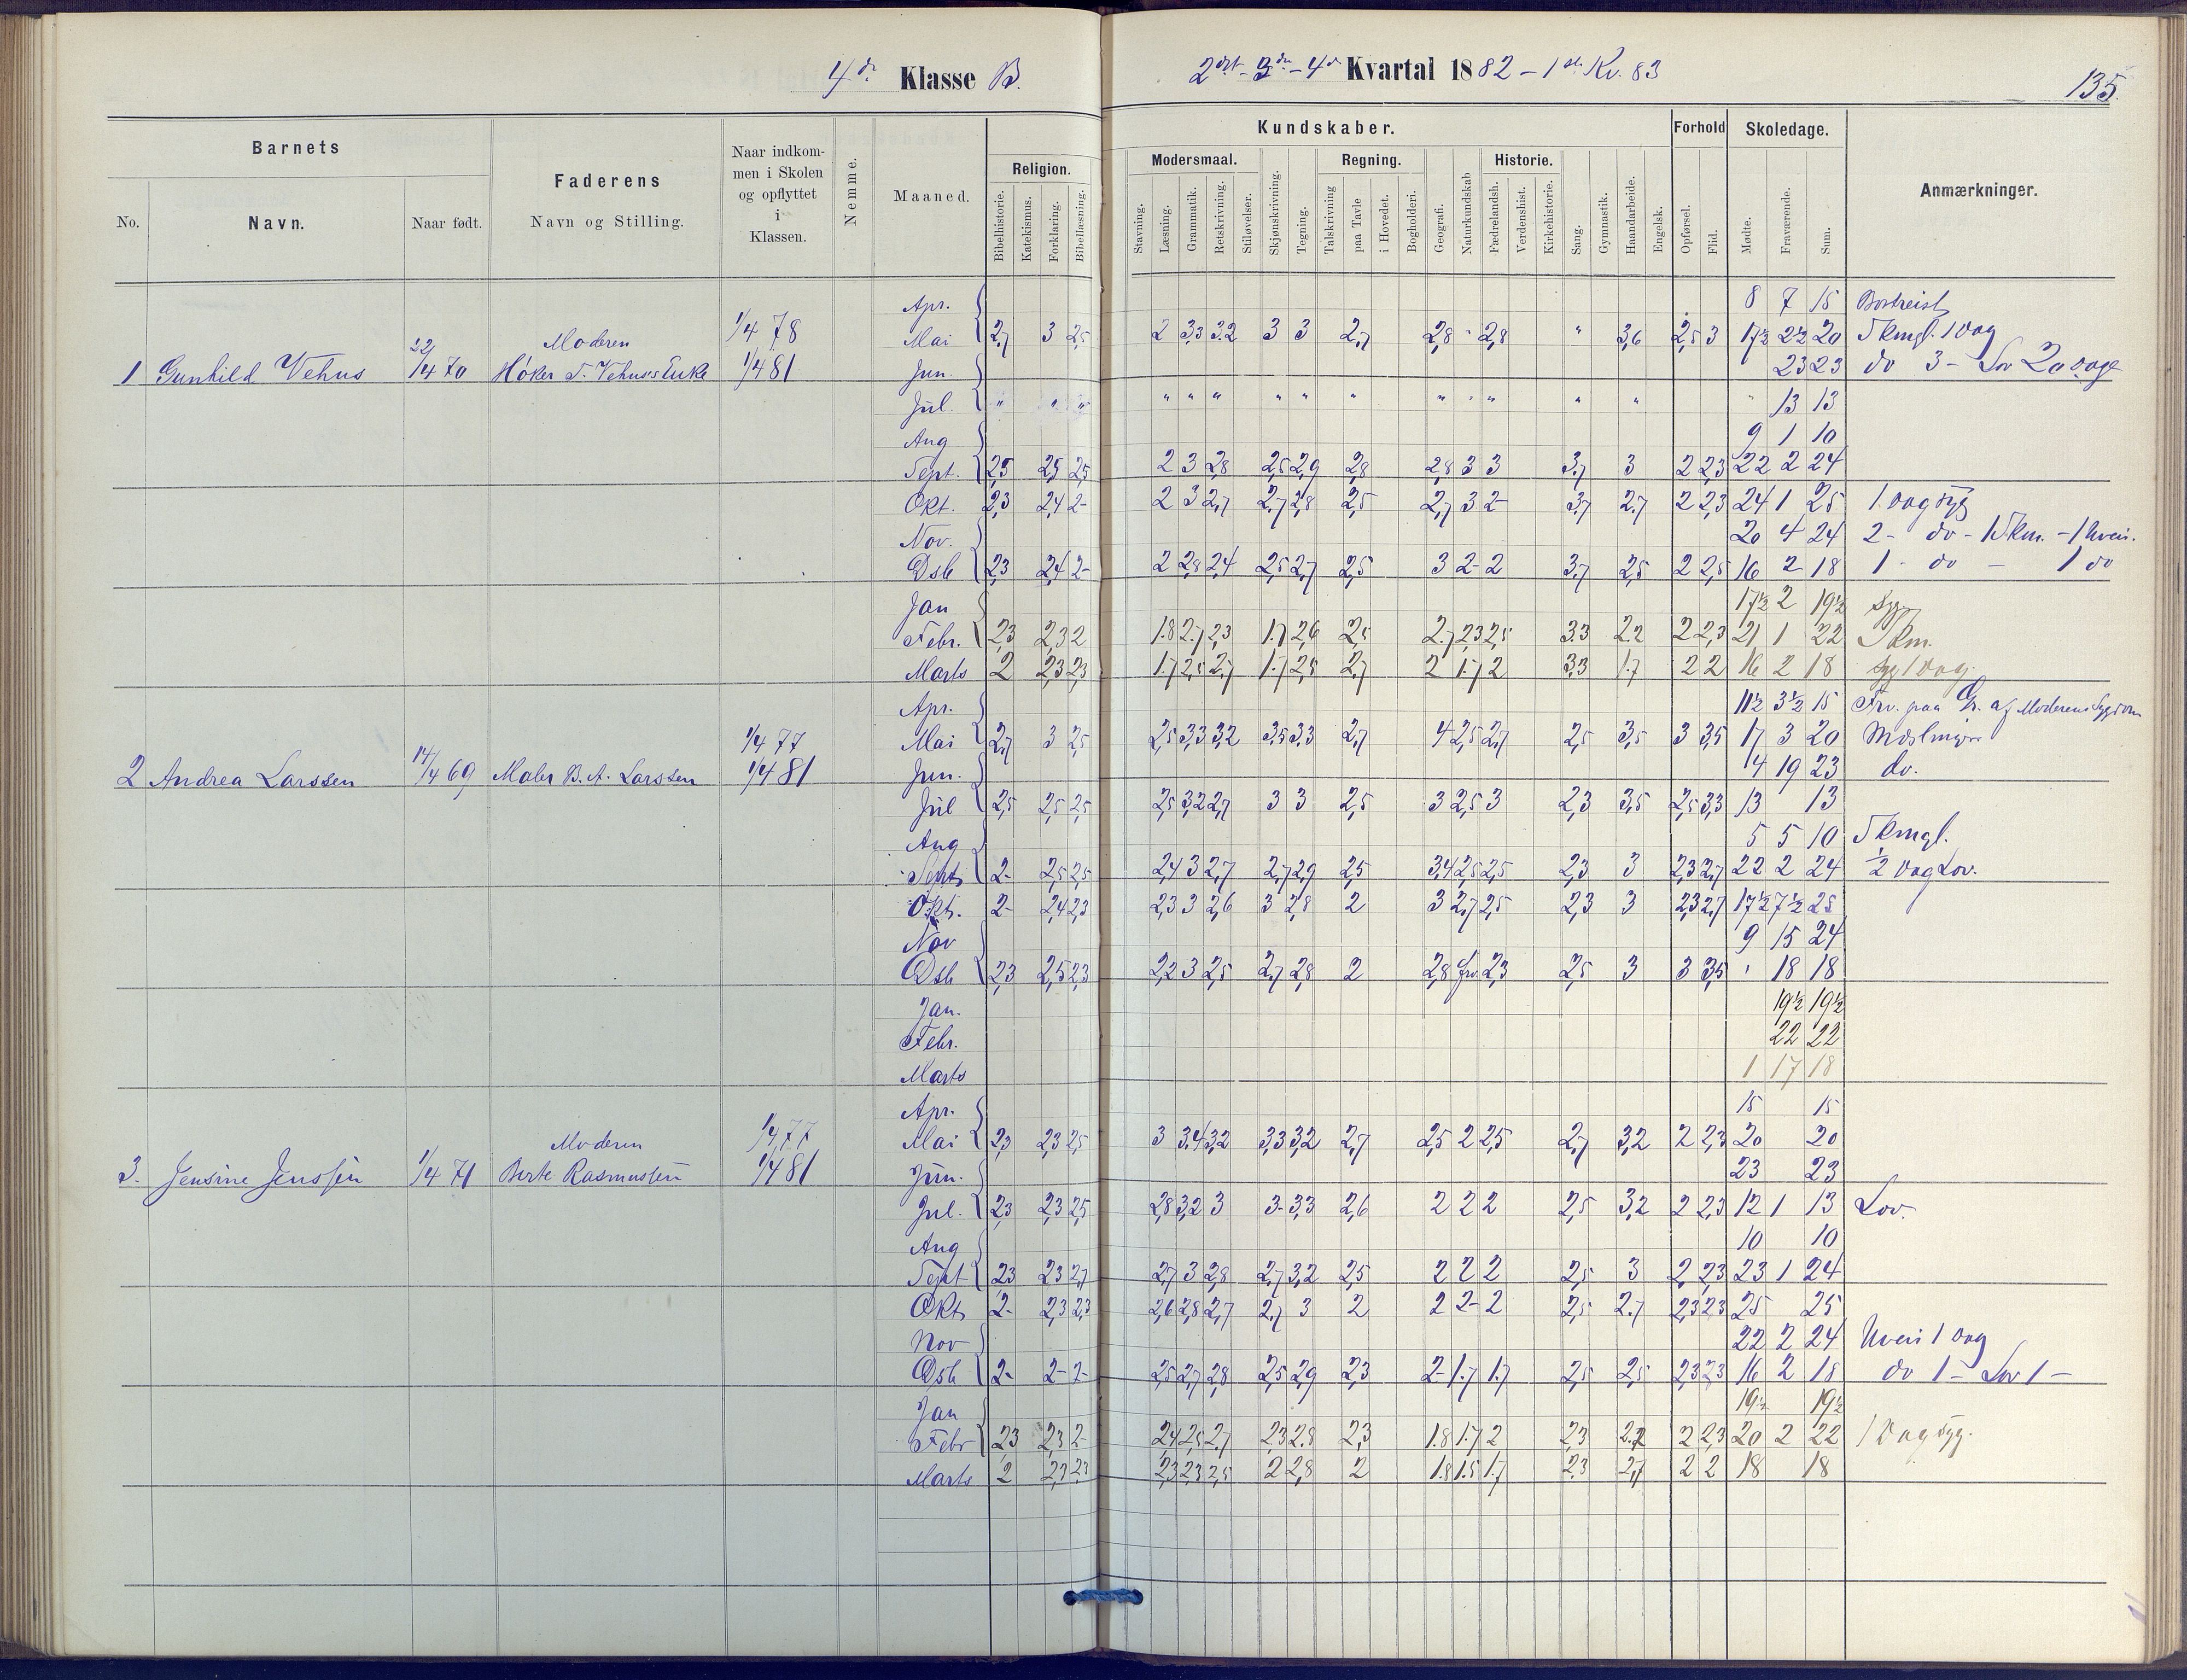 4de Klasse B.
2det - 3die - 4de Kvartal 1882 - 1ste Kv. 83
135.
Barnets
Faderens
Navn og Stilling.
Naar indkommen i Skolen og opflyttet i Klassen.
Nemme.
Maaned.
Religion.
Kundskaber.
Forhold
Skoledage.
Anmærkninger.
Modersmaal.
Regning.
Historie.
No.
Navn.
Naar født.
Bibelhistorie.
Katekismus.
Forklaring.
Bibellæsning.
Stavning.
Læsning.
Grammatik.
Retskrivning.
Stiløvelser.
Skjønskrivning.
Tegning.
Talskrivning
paa Tavle
i Hovedet.
Bogholderi.
Geografi.
Naturkundskab
Fædrelandsh.
Verdenshist.
Kirkehistorie.
Sang.
Gymnastik.
Haandarbeide.
Engelsk.
Opførsel.
Flid.
Mødte.
Fraværende.
Sum.
Apr. 8 7 15 Bortreist
Moderen 1/4 78 Mai 2,7 3 2,5 2 3,3 3.2 3 3 2,7 2,8 " 2,8 " 3,6 2,5 3 17½ 2½ 20 Skmgl. 1 Dag
1 Gunhild Vehus 22/4 70 Høker T. Vehus's Enke 1/4 81 Jun 23 23 do 3 - Lov 20 Dage
Jul. " " " " " " " " " " " " " " " 13 13
Aug 9 1 10
Sept. 2,5 2,5 2,5 2 3 2,8 2,5 2,9 2,8 2,8 3 3 3,7 3 2 2,3 22 2 24
Okt. 2,3 2,4 2- 2 3 2,7 2,7 2,8 2,5 2,7 3 2- 3,7 2.7 2 2,3 24 1 25 1 Dag syg
Nov. 20 4 24 2 - do - 1 Skm. - 1 Uveir.
Dsb 2,3 2,4 2- 2 2,8 2,4 2,5 2,7 2,5 3 2- 2 3,7 2,5 2 2,5 16 2 18 1 - do - 1 do
Jan 17½ 2 19½ Syg
Febr. 2,3 2,3 2 1.8 2.7 2,3 1.7 2,6 2,5 2.7 2,3 2,5 3.3 2.2 2 2,3 21 1 22 Skm.
Marts 2 2,3 2,3 1.7 2,5 2,7 1.7 2,5 2,7 2 1.7 2 3,3 1.7 2 2 16 2 18 Syg 1 Dag.
Apr. 11½ 3½ 15 Frv. paa Gr. af Moderens Sygdom
1/4 77 Mai 2,7 3 2,5 2,5 3,3 3,2 3,5 3.3 2,7 4 2,5 2,7 2,5 3,5 3 3,5 17 3 20 Mæslinger
2 Andrea Larssen 14/4 69 Maler B. A. Larssen 1/4 81 Jun. 4 19 23 do.
Jul 2,5 2,5 2,5 2,5 3,2 2,7 3 3 2,5 3 2,5 3 2,3 3,5 2,5 3,3 13 13
Aug 5 5 10 Skmgl.
Sept. 2- 2,5 2,5 2,4 3 2,7 2,7 2,9 2,5 3,4 2,5 2,5 2,3 3 2,3 2,7 22 2 24 ½ Dag Lov.
Okt. 2- 2,4 2,3 2,3 3 2,6 3 2,8 2 3 2,7 2,5 2,3 3 2,3 2,7 17½ 7½ 25
Nov 9 15 24
Dsb 2,3 2,5 2,3 2,2 3 2,5 2,7 2,8 2 2,8 frv. 2,3 2,5 3 3 3,5 " 18 18
Jan. 19½ 19½
Febr. 22 22
Marts 1 17 18
Apr. 15 15
Moderen 1/4 77 Mai 2,3 2,3 2,5 3 3.4 3,2 3,3 3,2 2,7 2,5 2 2,5 2,7 3,2 2 2,3 20 20
3. Jensine Jenssen 1/4 71 Berte Rasmussen 1/4 81 Jun. 23 23
Jul. 2,3 2,3 2,5 2,8 3,2 3 3- 3,3 2,6 2 2 2 2,5 3,2 2 2,3 12 1 13 Lov.
Aug 10 10
Sept 2,3 2,3 2,7 2,7 3 2,8 2,7 3,2 2,5 2 2 2 2,5 3 2 2,3 23 1 24
Okt. 2- 2,3 2,3 2,6 2,8 2,7 2,7 3 2 2 2- 2 2,5 2.7 2,3 2,3 25 25
Nov 22 2 24 Uveir 1 Dag
Dsb 2- 2- 2- 2,5 2,7 2,8 2,5 2,9 2,3 2- 1.7 1.7 2,5 2,5 2,3 2,3 16 2 18 do 1 - Lov 1 -
Jan 19½ 19½
Febr 2,3 2,3 2- 2,4 2,5 2.7 2,3 2.8 2,3 1.8 1.7 2 2,3 2.2 2 2,3 20 2 22 1 Dag syg.
Marts 2 2,3 2,3 2,3 2,3 2,5 2 2,8 2 1.8 1.5 1.7 2.3 2,7 2 2 18 18